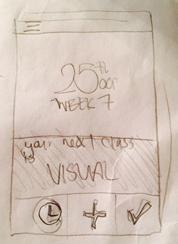 25th
OCT
WEEK 7
your next class
is
VISUAL